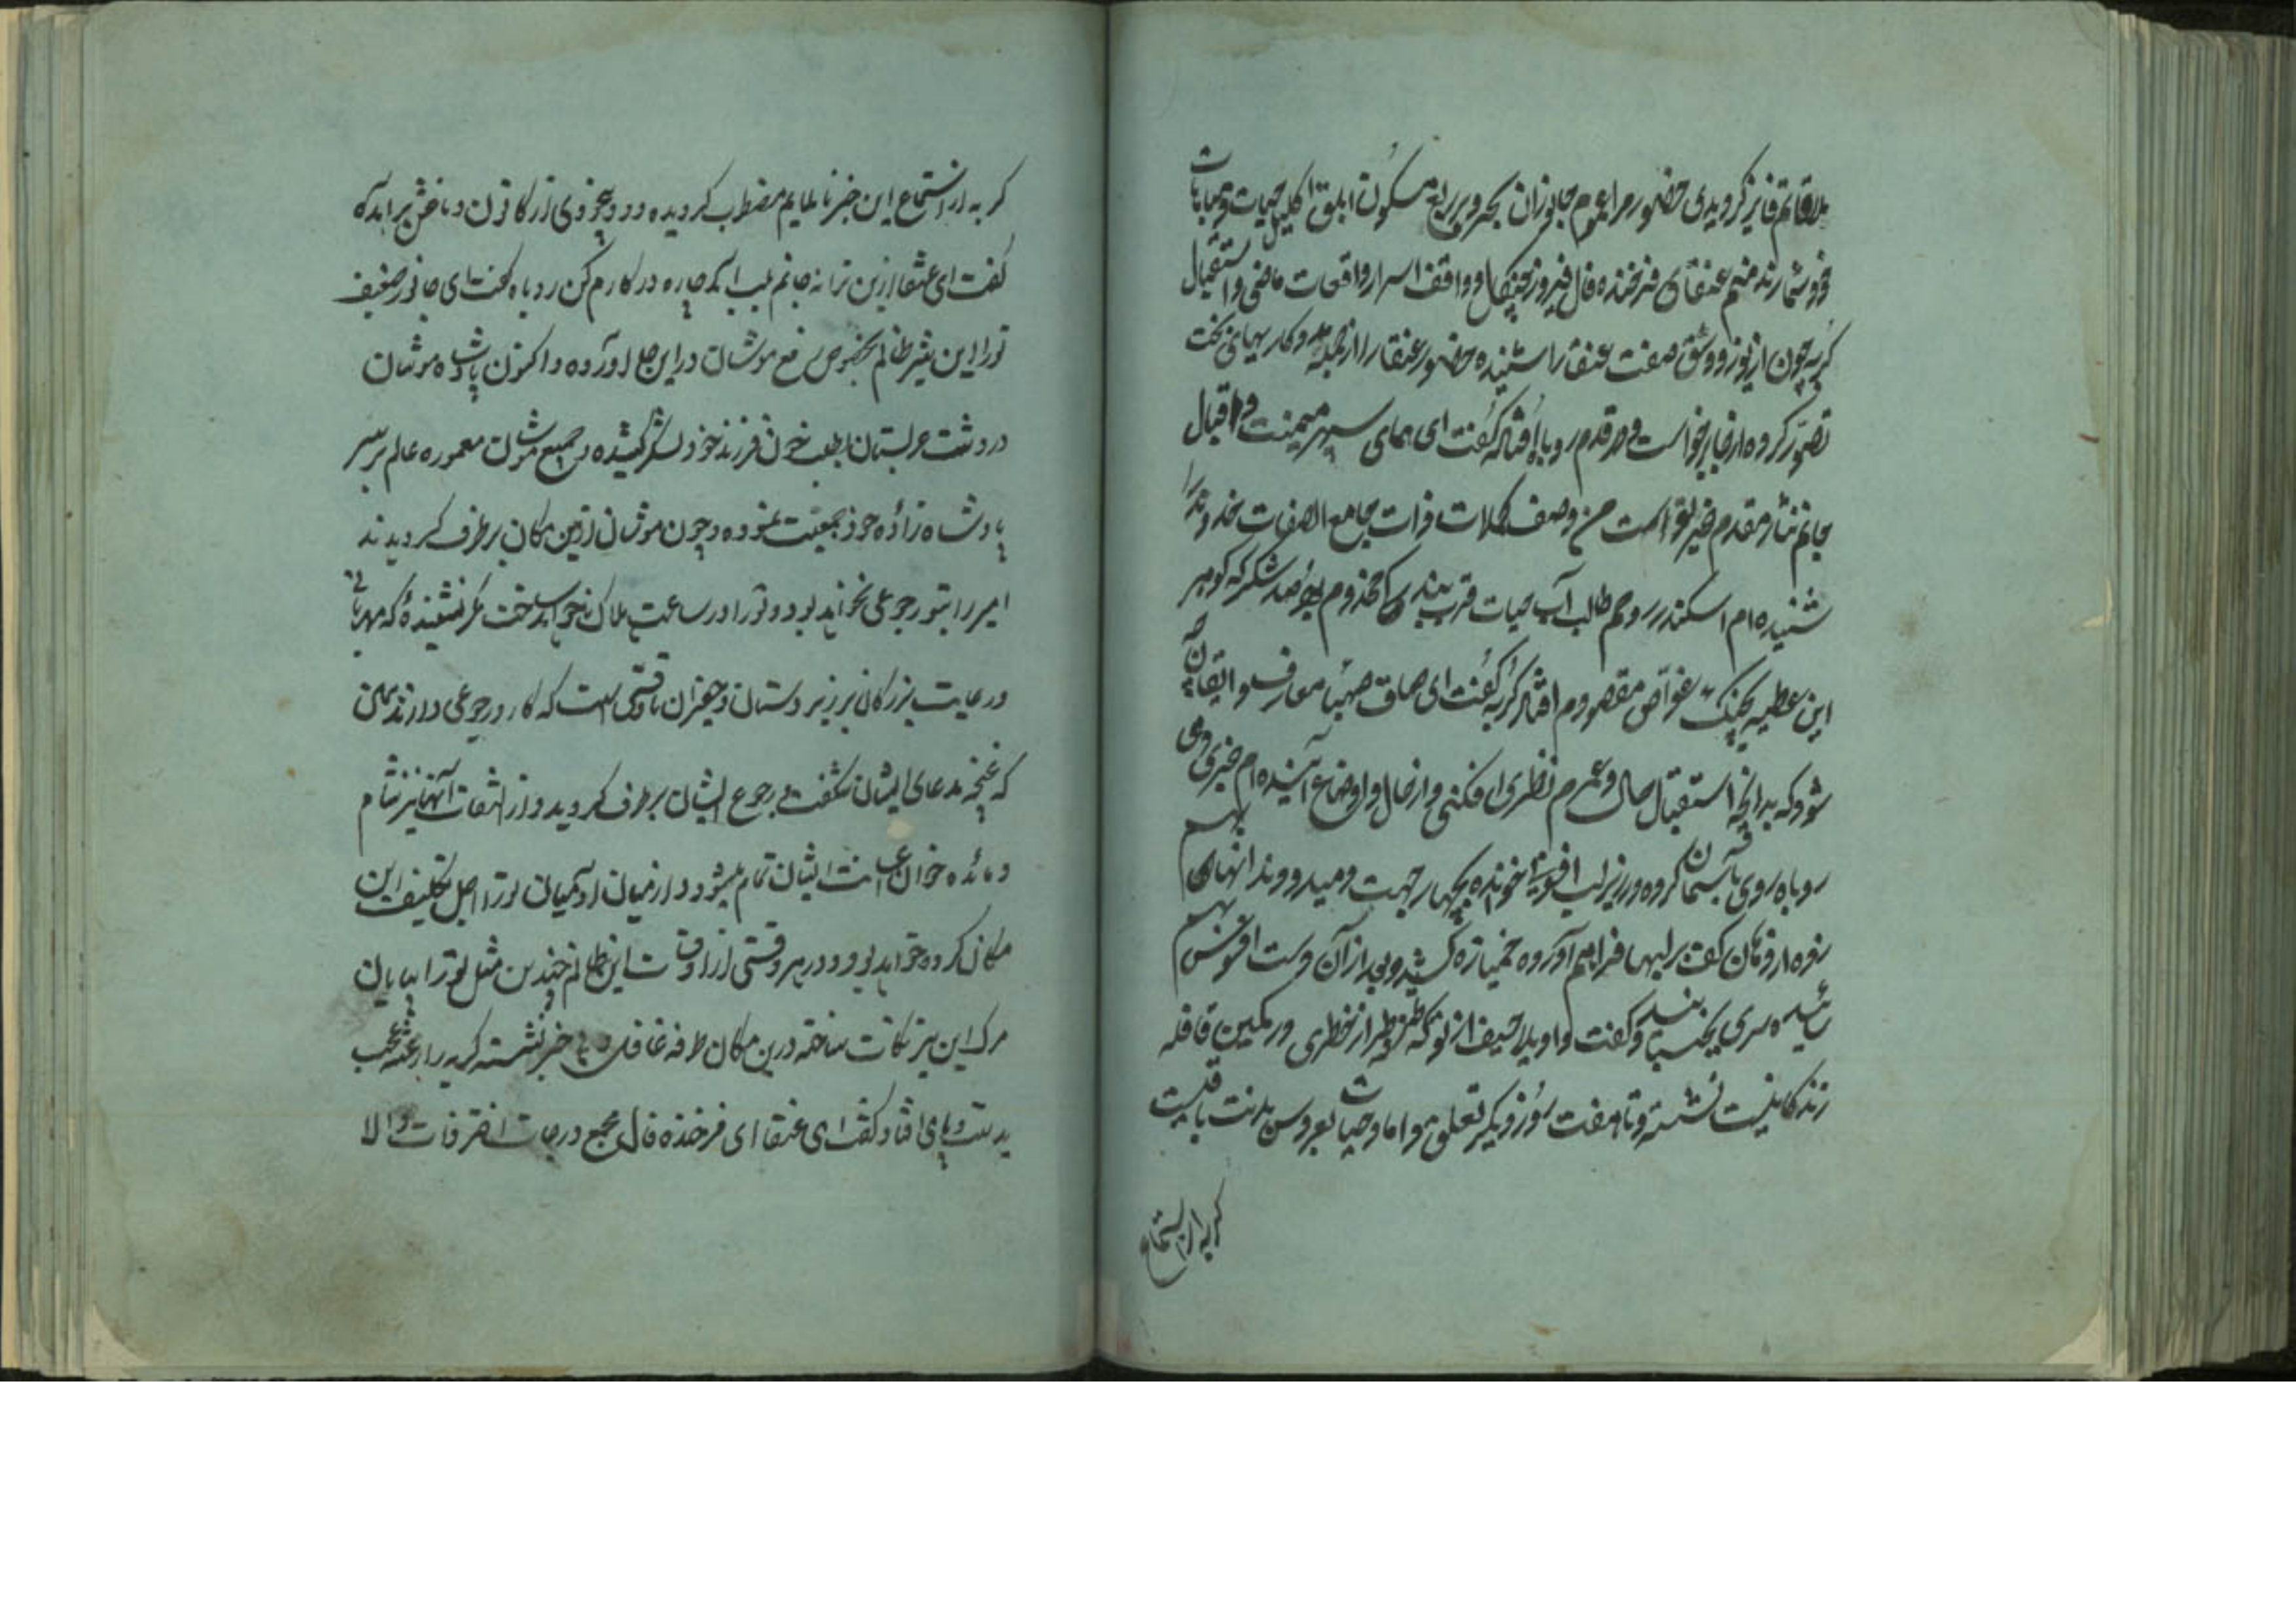 بملاقاتم فایز گردیدی حضور مرا عموم جانوران بحر و بر ربع مسکون ابلق اکلیل حیات و مباهات
خود شمارند منم عنقای فرخنده فال فیروز چنگال و واقف اسرار واقعات ماضی و استقبال
گربه چون از صفت عنقا را شنیده حضور عنقا را از جمله مددکاریهای بخت
تصور کرده از جا برخواست و در قدم روباه افتاد گفت ای همای سپهر میمنت و اقبال
جانم نثار مقدم خیر تو است من وصف کمالات ذات جامع الصفات خداوند را
شنیده ام اسکندر روحم طالب آب حیات قرب بندگی مخدوم بود صد شکر که گوهر
این عطیه بچنگ غواص مقصودم افتاد گربه گفت ای صاف صهبای معارف و ایقان چه
شود که بدانچه استقبال حال و عمرم نظری افکنی و از حال و اوضاع آینده ام خبری دهی
روباه روی بآسمان کرده و زیر لب افسونی خوانده بچهار جهت دمید و دندانهای بهم
برلبها فراهم آورده خمیازه کشید و بعد از آن دست افسوس بهم
سائیده سری بجنبانید و گفت واویلا حیف از تو که خطری در کمین قافله
زندگانیت نشسته و تا هفت روز دیگر تعلق داماد حیات بعروس بدنت باقیست
گربه از استماع
گربه از استماع این خبر ناملایم مضطرب گردیده دود بیخودی از کانون دماغش برآمده
گفت ای عنقا ازین ترانه جانم بلب آمد چاره در کارم کن روباه گفت ای جانور ضعیف
تو را این شیر ظالم بخصوص رفع موشان در این جا آورده و اکنون پادشاه موشان
در دشت عربستان بطلب خون فرزند خود لشکر کشیده و جمیع موشان معموره عالم بر سر
پادشاه زاده خود جمعیت نموده و چون موشان ازین مکان برطرف گردیدند
امیر را بتو رجوعی نخواهد بود و تو را در ساعت هلاک خواهد ساخت مگر نشنیده که مهربانی
و رعایت بزرگان بر زیر دستان و حقیران تا وقتی است که کار و رجوعی دارند همین
که غنچه مدعای ایشان شگفت و رجوع ایشان برطرف گردید دوران التفات آنها نیز تمام
و مائده خوان اعانت ایشان تمام میشود و از میان آدمیان تو را اجل تکلیف این
مکان کرده خواهد بود و در هر وقتی از اوقات این ظالم چندین مثل تو را بپایان
مرگ این نیز نکات ساخته درین مکان طرفه غافل و بی خبر نشسته گربه را رعشه عجب
بدست و پای افتاد گفت ای عنقای فرخنده فال مجمع درجات اشرفات والا